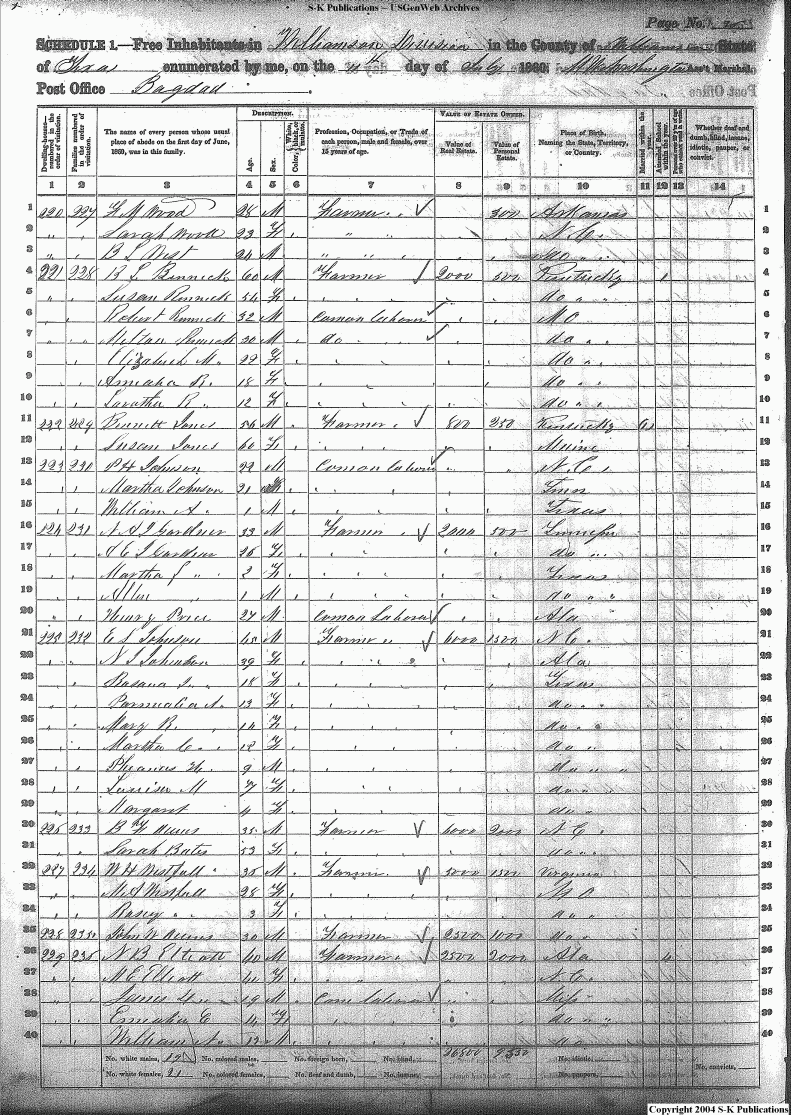 S-K Publications – USGenWeb Archives
Page No.
SCHEDULE 1.—Free Inhabitants in Williamson Division in the County of Williamson State
of Texas enumerated by me, on the 11th day of July 1860. Ass't Marshal.
Post Office Bagdad
Dwelling-houses numbered in the order of visitation. Families numbered in the order of visitation. The name of every person whose usual place of abode on the first day of June, 1860, was in this family. DESCRIPTION. Age. Sex. Color, White, black, or mulatto. Profession, Occupation, or Trade of each person, male and female, over 15 years of age. VALUE OF ESTATE OWNED. Value of Real Estate. Value of Personal Estate. Place of Birth, Naming the State, Territory, or Country. Married within the year. Attended School within the year. Whether deaf and dumb, blind, insane, idiotic, pauper, or convict.
1 2 3 4 5 6 7 8 9 10 11 12 13 14
1 220 227 M Wood 28 M Farmer 300 Arkansas 1
2 " " Sarah Wood 23 F " " N.C. 2
3 " " B S West 24 M " " do 3
4 221 228 60 M Farmer 2000 500 Kentucky 1 4
5 Susan Rennick 54 F do 5
6 Robert Rennick 32 M Comon Laborer MO 6
7 Milton Rennick 30 M do do 7
8 Elizabeth M. 22 F do 8
9 Amelia R. 18 F do 9
10 R. 12 F do 10
11 222 229 Burnett Jones 56 M Farmer 800 250 Kentucky 11
12 Susan Jones 60 F Maine 12
13 223 230 Johnson 22 M Comon Laborer N.C. 13
14 Martha Johnson 21 Tenn 14
15 William A. 1 M Texas 15
16 224 231 N A J Gardner 33 M Farmer 2000 500 Tennessee 16
17 Gardner 26 F do 17
18 Martha J " 2 F Texas 18
19 Allen 1 M do 19
20 Henry Price 27 M Comon Laborer Ala 20
21 225 232 E S Johnson 45 M Farmer 6000 1500 N.C. 21
22 N J Johnson 39 F Ala 22
23 18 F Texas 23
24 13 F do 24
25 Mary B. 14 F do 25
26 Martha C. 12 F do 26
27 9 M do 27
28 Louisa M 7 F do 28
29 Margaret 4 F do 29
30 226 233 B F 35 M Farmer 6000 2000 N.C. 30
31 Sarah Bates 53 F do 31
32 227 234 W H Westfall 35 M Farmer 5000 1500 Virginia 32
33 M A Westfall 28 F MO 33
34 Rosey " 3 F do 34
35 228 235 John W 30 M Farmer 2500 1000 do 35
36 229 236 N B Elliott 40 M Farmer 2500 2000 Ala 36
37 M E Elliott 41 F N.C. 37
38 James 19 M Com Laborer Miss 38
39 C F do 39
40 William A " 12 M do 40
No. white males, 19 No. colored males, No. foreign born, No. blind, 26500 9550 No. idiotic, No. convicts,
No. white females, 21 No. colored females, No. deaf and dumb, No. insane, No. paupers,
Copyright 2004 S-K Publications